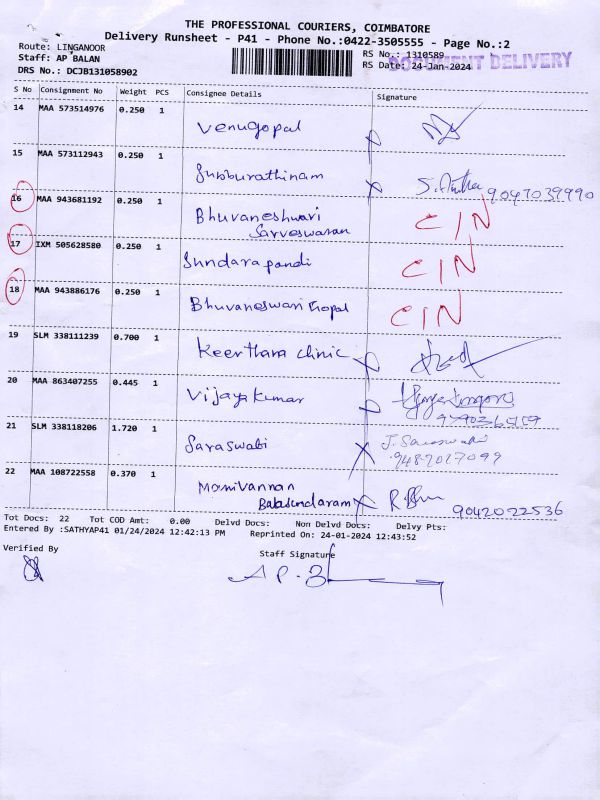 THE PROFESSIONAL COURIERS, COIMBATORE
Delivery Runsheet - P41 - Phone No.:0422-3505555 - Page No.:2
Route: LINGANOOR
RS No.: 1310589
Staff: AP BALAN
RS Date: 24-Jan-2024
DOCUMENT DELIVERY
DRS No.: DCJB131058902
S No Consignment No Weight PCS Consignee Details Signature
14 MAA 573514976 0.250 1 Venugopal
15 MAA 573112943 0.250 1 Subburathinam 9047039990
16 MAA 943681192 0.250 1 Bhuvaneshwari CIN
Sarveswaran
17 IXM 505628580 0.250 1 Sundarapandi CIN
18 MAA 943886176 0.250 1 Bhuvaneswari Gopal CIN
19 SLM 338111239 0.700 1 Keerthara clinic
20 MAA 863407255 0.445 1 Vijayakumar
21 SLM 338118206 1.720 1 Saraswati J. Saraswati
9487017099
22 MAA 108722558 0.370 1 Manivannan
Balasundaram 9042022536
Tot Docs: 22 Tot COD Amt: 0.00 Delvd Docs: Non Delvd Docs: Delvy Pts:
Entered By :SATHYAP41 01/24/2024 12:42:13 PM Reprinted On: 24-01-2024 12:43:52
Verified By
Staff Signature
A P. B